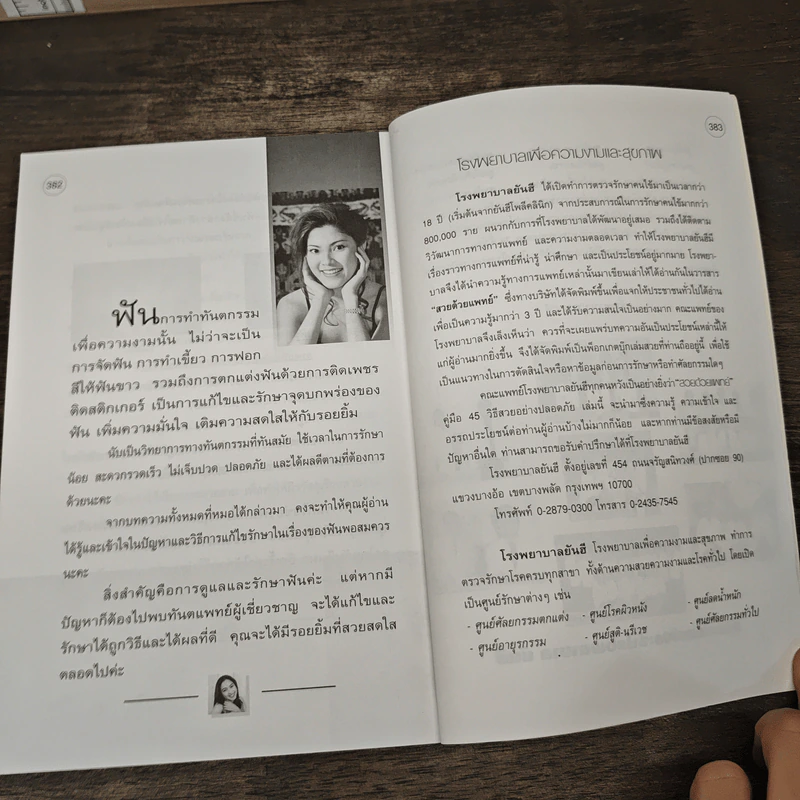 382
ฟันการทำทันตกรรม
เพื่อความงามนั้น ไม่ว่าจะเป็น
การจัดฟัน การทำเขี้ยว การฟอก
สีให้ฟันขาว รวมถึงการตกแต่งฟันด้วยการติดเพชร
ติดสติกเกอร์ เป็นการแก้ไขและรักษาจุดบกพร่องของ
ฟัน เพิ่มความมั่นใจ เติมความสดใสให้กับรอยยิ้ม
นับเป็นวิทยาการทางทันตกรรมที่ทันสมัย ใช้เวลาในการรักษา
น้อย สะดวกรวดเร็ว ไม่เจ็บปวด ปลอดภัย และได้ผลดีตามที่ต้องการ
ด้วยนะคะ
จากบทความทั้งหมดที่หมอได้กล่าวมา คงจะทำให้คุณผู้อ่าน
ได้รู้และเข้าใจในปัญหาและวิธีการแก้ไขรักษาในเรื่องของฟันพอสมควร
นะคะ
สิ่งสำคัญคือการดูแลและรักษาฟันค่ะ แต่หากมี
ปัญหาก็ต้องไปพบทันตแพทย์ผู้เชี่ยวชาญ จะได้แก้ไขและ
รักษาได้ถูกวิธีและได้ผลที่ดี คุณจะได้มีรอยยิ้มที่สวยสดใส
ตลอดไปค่ะ
383
โรงพยาบาลเพื่อความงามและสุขภาพ
โรงพยาบาลยันฮี ได้เปิดทำการตรวจรักษาคนไข้มาเป็นเวลากว่า
18 ปี (เริ่มต้นจากยันฮีโพลีคลินิก) จากประสบการณ์ในการรักษาคนไข้มากกว่า
800,000 ราย ผนวกกับการที่โรงพยาบาลได้พัฒนาอยู่เสมอ รวมถึงได้ติดตาม
วิวัฒนาการทางการแพทย์ และความงามตลอดเวลา ทำให้โรงพยาบาลยันฮีมี
เรื่องราวทางการแพทย์ที่น่ารู้ น่าศึกษา และเป็นประโยชน์อยู่มากมาย โรงพยา-
บาลจึงได้นำความรู้ทางการแพทย์เหล่านั้นมาเขียนเล่าให้ได้อ่านกันในวารสาร
"สวยด้วยแพทย์" ซึ่งทางบริษัทได้จัดพิมพ์ขึ้นเพื่อแจกให้ประชาชนทั่วไปได้อ่าน
เพื่อเป็นความรู้มากว่า 3 ปี และได้รับความสนใจเป็นอย่างมาก คณะแพทย์ของ
โรงพยาบาลจึงเล็งเห็นว่า ควรที่จะเผยแพร่บทความอันเป็นประโยชน์เหล่านี้ให้
แก่ผู้อ่านมากยิ่งขึ้น จึงได้จัดพิมพ์เป็นพ็อกเกตบุ๊กเล่มสวยที่ท่านถืออยู่นี้ เพื่อใช้
เป็นแนวทางในการตัดสินใจหรือหาข้อมูลก่อนการรักษาหรือทำศัลยกรรมใดๆ
คณะแพทย์โรงพยาบาลยันฮีทุกคนหวังเป็นอย่างยิ่งว่า "สวยด้วยแพทย์"
คู่มือ 45 วิธีสวยอย่างปลอดภัย เล่มนี้ จะนำมาซึ่งความรู้ ความเข้าใจ และ
อรรถประโยชน์ต่อท่านผู้อ่านบ้างไม่มากก็น้อย และหากท่านมีข้อสงสัยหรือมี
ปัญหาอื่นใด ท่านสามารถขอรับคำปรึกษาได้ที่โรงพยาบาลยันฮี
โรงพยาบาลยันฮี ตั้งอยู่เลขที่ 454 ถนนจรัญสนิทวงศ์ (ปากซอย 90)
แขวงบางอ้อ เขตบางพลัด กรุงเทพฯ 10700
โทรศัพท์ 0-2879-0300 โทรสาร 0-2435-7545
โรงพยาบาลยันฮี โรงพยาบาลเพื่อความงามและสุขภาพ ทำการ
ตรวจรักษาโรคครบทุกสาขา ทั้งด้านความสวยความงามและโรคทั่วไป โดยเปิด
เป็นศูนย์รักษาต่างๆ เช่น
- ศูนย์ศัลยกรรมตกแต่ง - ศูนย์โรคผิวหนัง - ศูนย์ลดน้ำหนัก
- ศูนย์อายุรกรรม - ศูนย์สูติ-นรีเวช - ศูนย์ศัลยกรรมทั่วไป